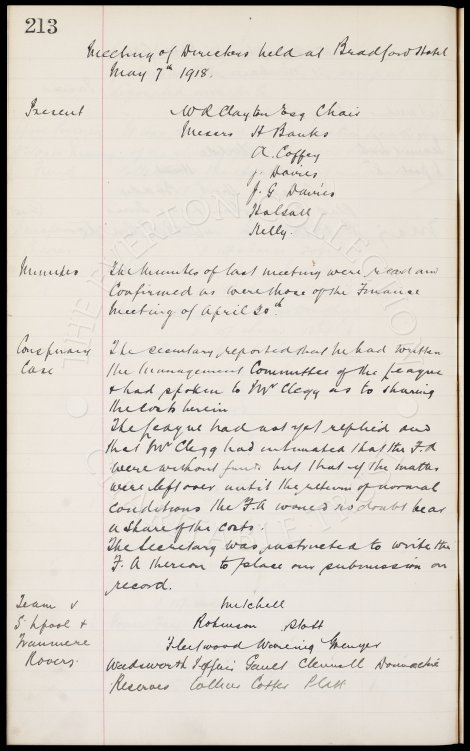 213
Meeting of Directors held at Bradford Hotel
May 7th 1918.
Present W R Clayton Esq Chair
Messrs H Banks
A. Coffey
J. Davies
J. G. Davies
Halsall
Kelly.
Minutes The Minutes of last meeting were read and
Confirmed as were those of the Finance
Meeting of April 30th.
Conspiracy The secretary reported that he had written
Case the Management Committee of the League
& had spoken to Mr Clegg as to sharing
the costs herein.
The League had not yet replied and
that Mr Clegg had intimated that the F.A
were without funds but that if the matter
were left over until the return of normal
conditions the F.A would no doubt bear
a share of the costs.
The Secretary was instructed to write the
F.A thereon to place our submission on
record.
Team v Mitchell
S'hpool & Robinson Stott
Tranmere Fleetwood Wareing Grenyer
Rovers. Wadsworth Jefferis Gault Clennell Donnachie
Reserves Collins Cotter Platt
THE EVERTON COLLECTION
CHARITABLE TRUST